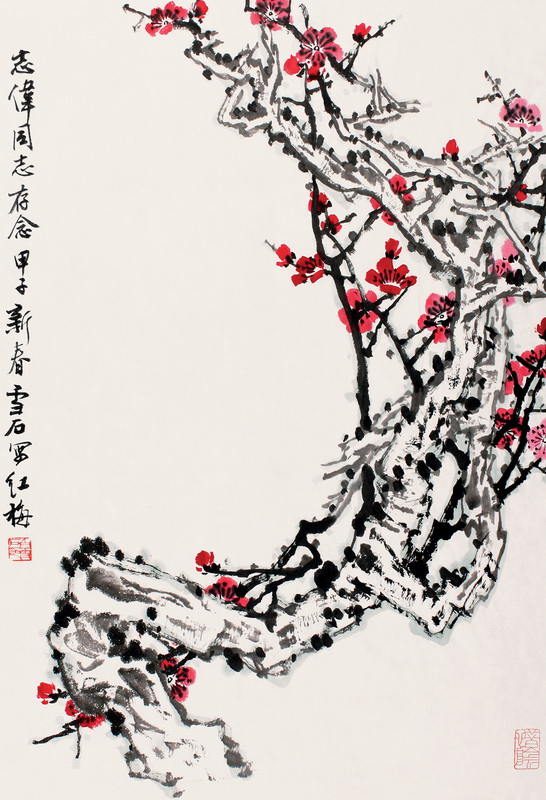 志偉同志存念甲子新春雪石寫红梅